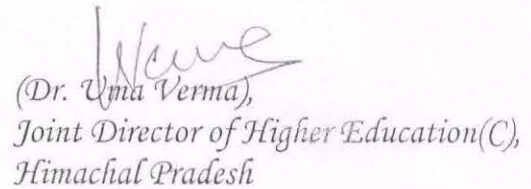 (Dr. Uma Verma),
Joint Director of Higher Education(C),
Himachal Pradesh